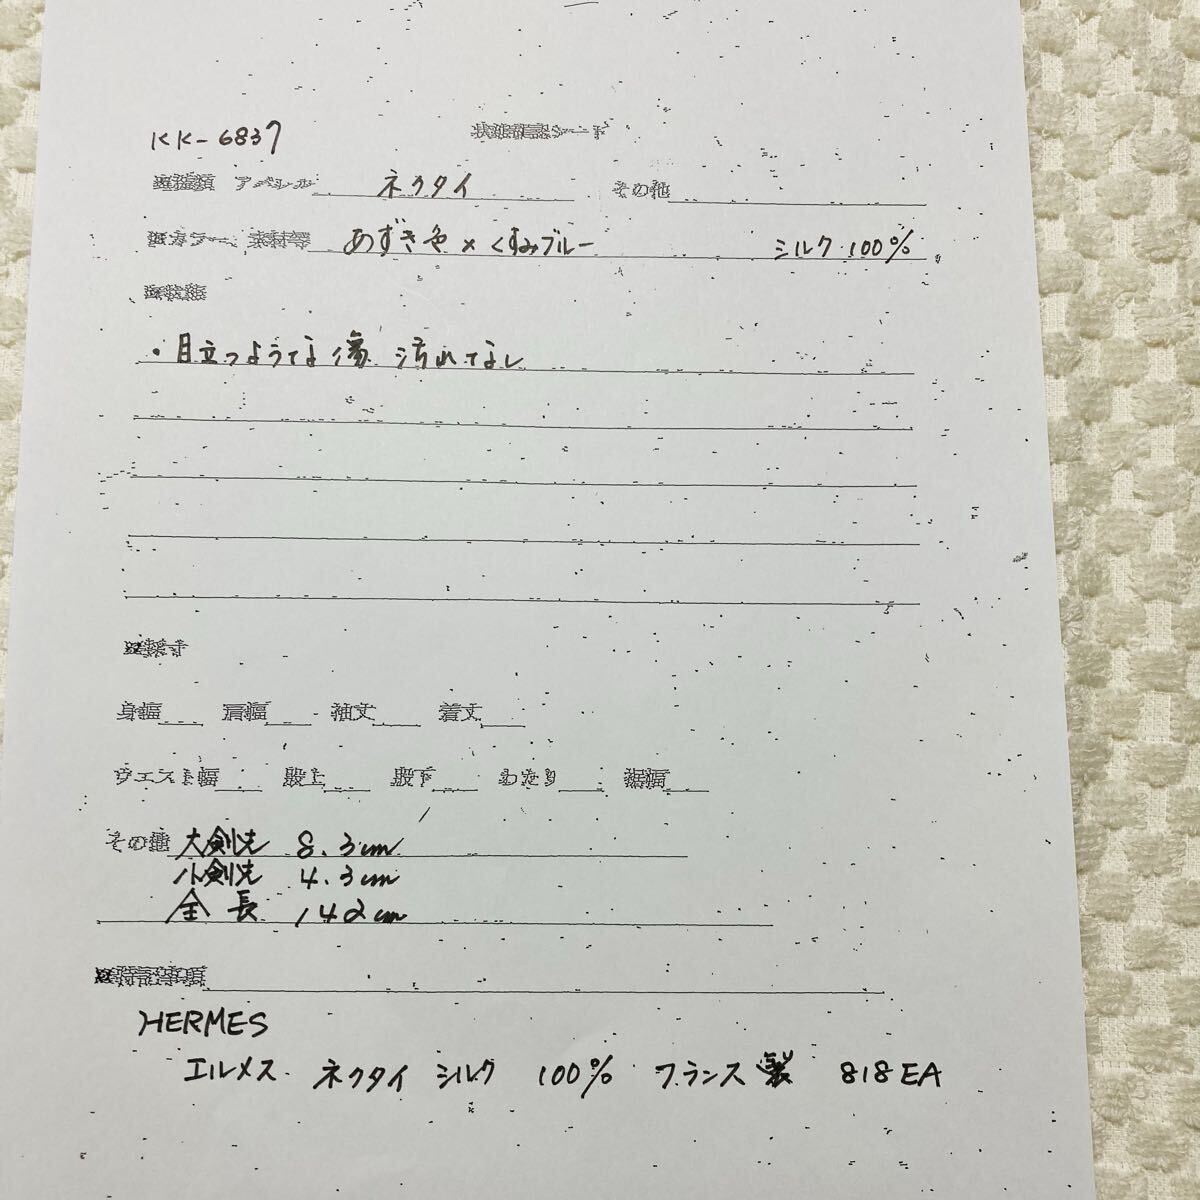 KK-6837
状態確認シート
種類 アパレル ネクタイ その他
カラー、素材等 あずき色×くすみブルー シルク100%
状態
・目立つような傷 汚れなし
採寸
身幅 肩幅 袖丈 着丈
ウエスト幅 股上 股下 わたり 裾幅
その他 大剣先 8.3cm
小剣先 4.3cm
全長 142cm
特記事項
HERMES
エルメス ネクタイ シルク 100% フランス製 818EA